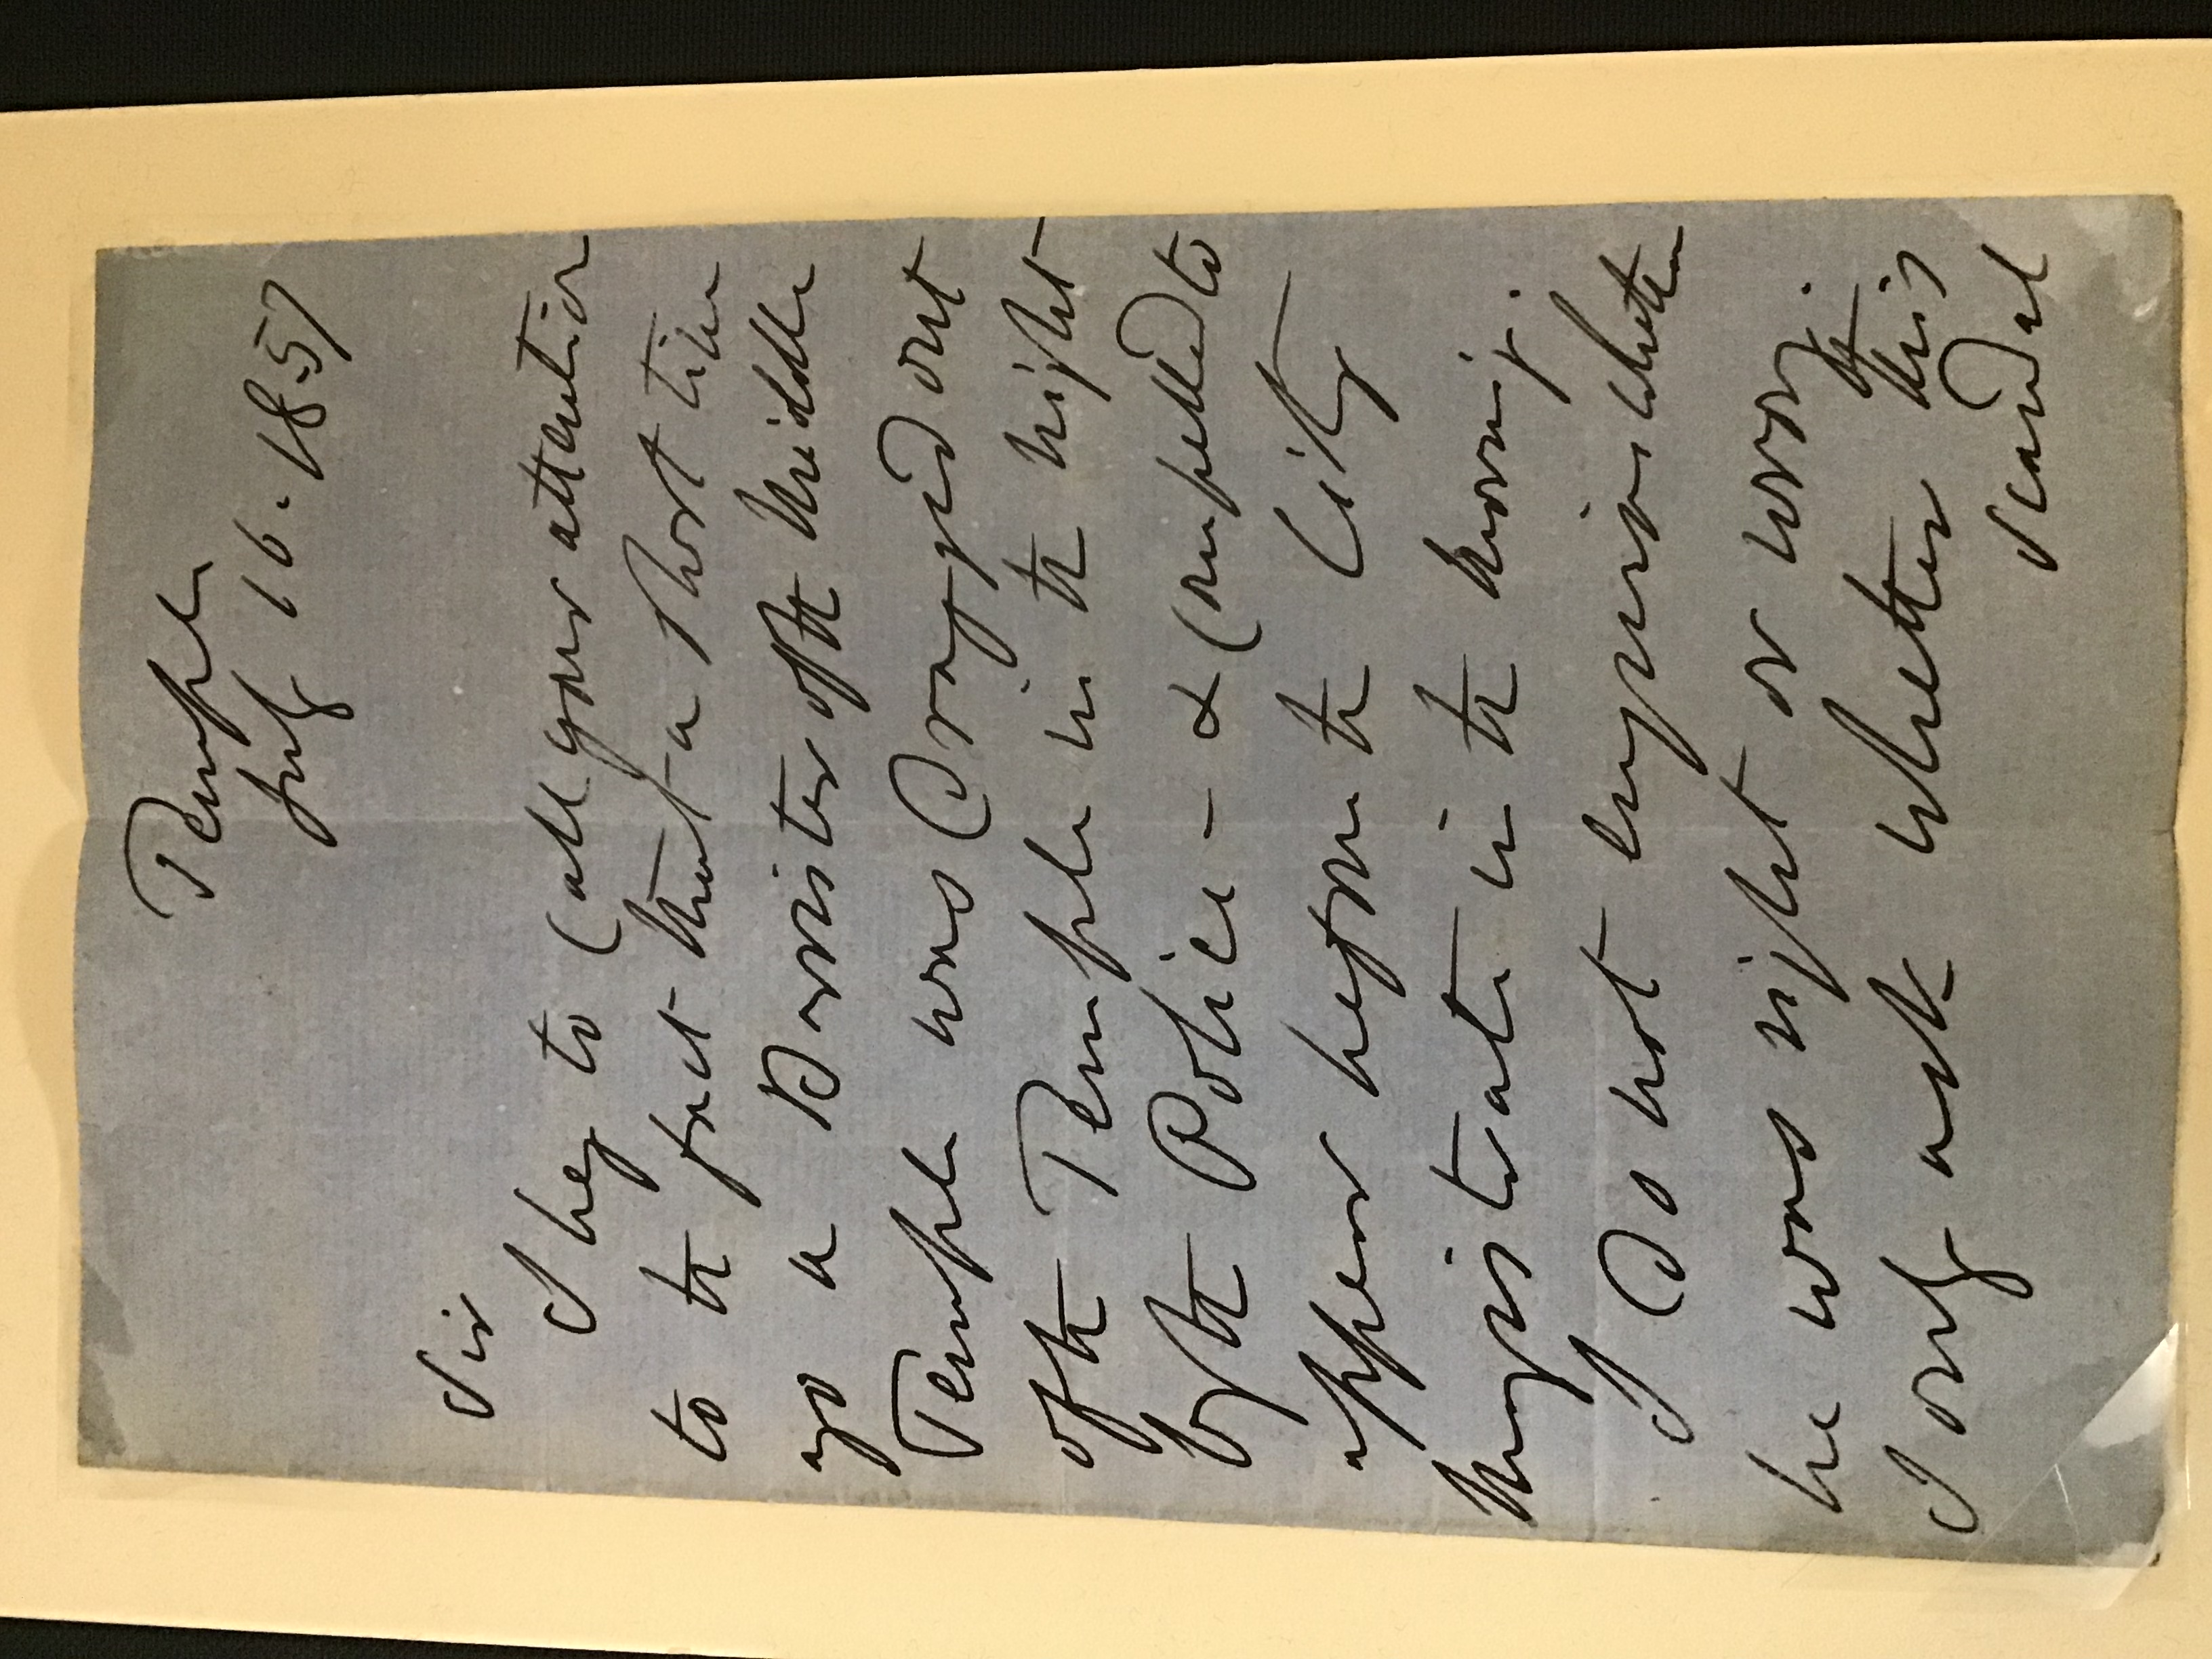 Temple
July 16. 1857
Sir
I beg to call your attention
to the fact that a short time
ago a Barrister of the Middle
Temple was Dragged out
of the Temple in the night
by the Police - & compelled to
appear before the City
Magistrate in the morning.
I do not enquire whether
he was right or wrong.
I only ask whether this
scandal